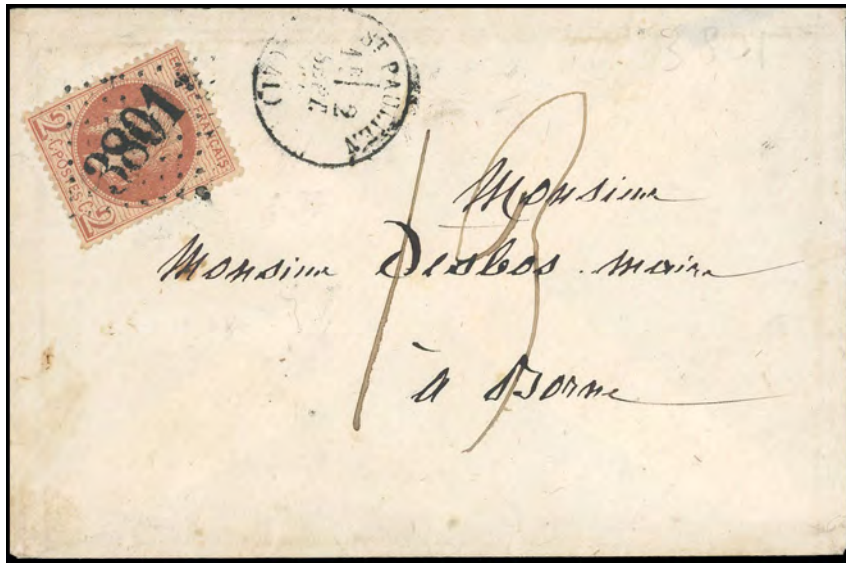 3801
EMPIRE FRANÇAIS
2 C. POSTES C. 2
ST PAULIEN
2
SEPT.
(41)
13
Monsieur
Monsieur Desbos maire
à Borne